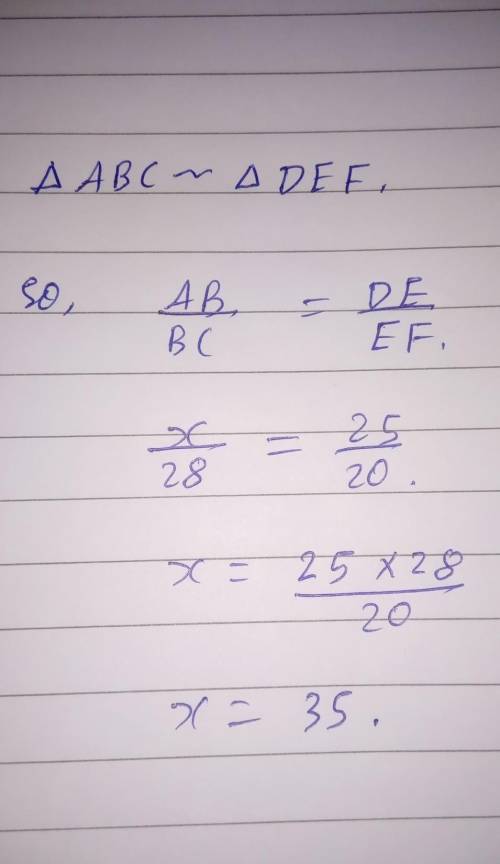 Δ ABC ~ Δ DEF.
So, AB/BC = DE/EF.
x/28 = 25/20.
x = 25 × 28/20
x = 35.